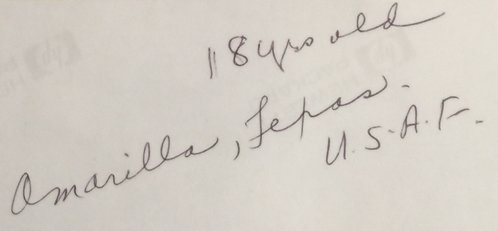 18 yrs old
Amarilla, Texas.
U.S.A.F.